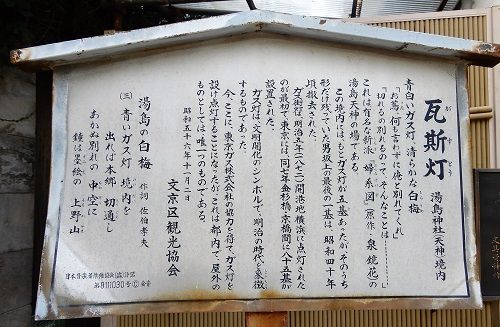 瓦斯灯 湯島神社(天神)境内
がすとう
青白いガス灯 清らかな白梅
「お蔦、何も言わずに俺と別れてくれ」
「切れるの別れるのって、そんなことは……」
これは有名な新派「婦系図」(原作・泉鏡花)の
湯島天神の場である。
この境内には、もとガス灯が五基あったが、そのうち
形だけ残っていた男坂上の最後の一基は、昭和四十年
頃撤去された。
ガス街灯は、明治五年(一八七二)開港地横浜に点灯された
のが最初で、東京には、同七年金杉橋・京橋間に八十五基が
設置された。
ガス灯は、文明開化のシンボルで、明治の時代を象徴
するものであった。
今、ここに東京ガス株式会社の協力を得て、ガス灯を
設け点灯することになったが、これは都内で、屋外の
ものとしては、唯一つのものである。
昭和五十六年十一月一日
文京区観光協会
湯島の白梅 作詞 佐伯孝夫
(三) 青いガス灯 境内を
出れば本郷 切通し
あかぬ別れの 中空に
鐘は墨絵の 上野山
日本音楽著作権協会(出)許諾
第8111030号 ©